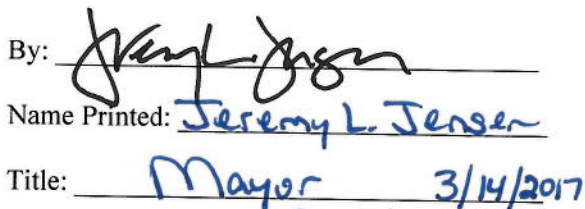 By: Jeremy L. Jensen
Name Printed: Jeremy L. Jensen
Title: Mayor 3/14/2017